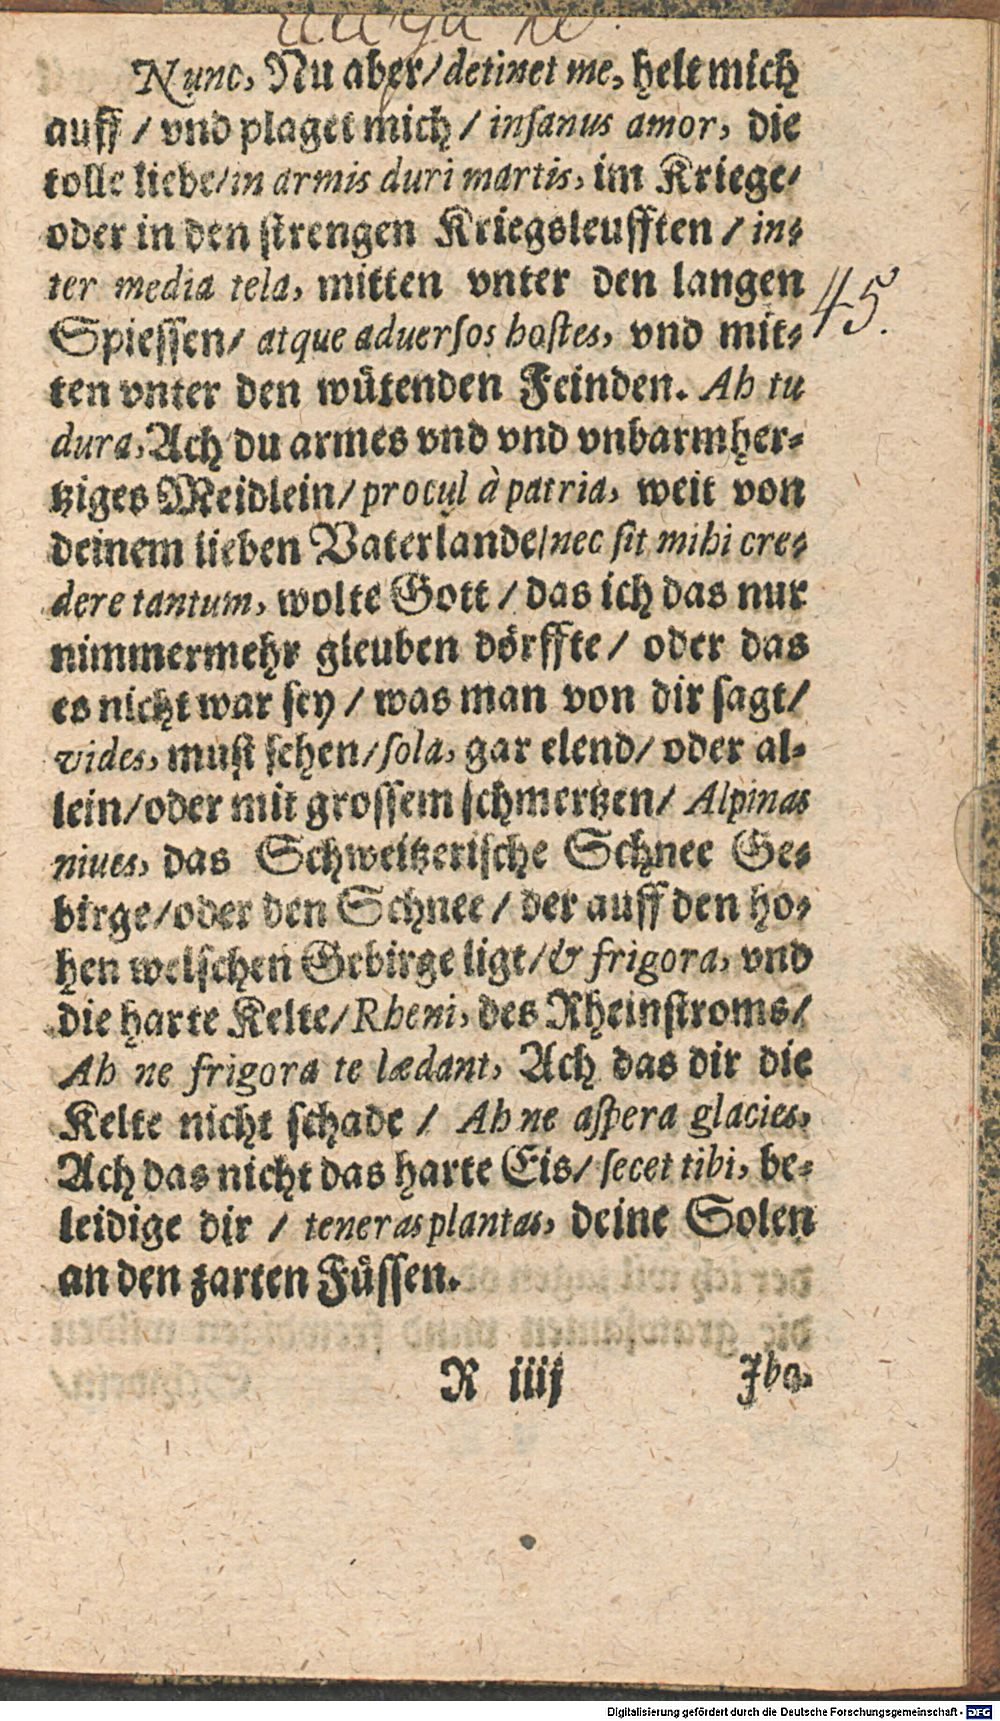 Nunc, Nu aber/ detinet me, helt mich
auff / vnd plaget mich / inſanus amor, die
tolle liebe/ in armis duri martis, im Kriege/
oder in den ſtrengen Kriegsleufften / in-
ter media tela, mitten vnter den langen
Spieſſen/ atque aduerſos hoſtes, vnd mit-
ten vnter den wuͤtenden Feinden. Ah tu
dura, Ach du armes vnd vnd vnbarmher-
tziges Meidlein/ procul à patria, weit von
deinem lieben Vaterlande/ nec ſit mihi cre-
dere tantum, wolte Gott / das ich das nur
nimmermehr gleuben doͤrffte/ oder das
es nicht war ſey / was man von dir ſagt/
vides, muſt ſehen/ ſola, gar elend/ oder al-
lein/ oder mit groſſem ſchmertzen/ Alpinas
niues, das Schweitzeriſche Schnee Ge-
birge/ oder den Schnee / der auff den ho-
hen welſchen Gebirge ligt/ & frigora, vnd
die harte Kelte/ Rheni, des Rheinſtroms/
Ah ne frigora te lædant, Ach das dir die
Kelte nicht ſchade / Ah ne aſpera glacies,
Ach das nicht das harte Eis/ ſecet tibi, be-
leidige dir / teneras plantas, deine Solen
an den zarten Fuͤſſen.
R iiij Jbo,
45.
Digitalisierung gefördert durch die Deutsche Forschungsgemeinschaft - DFG